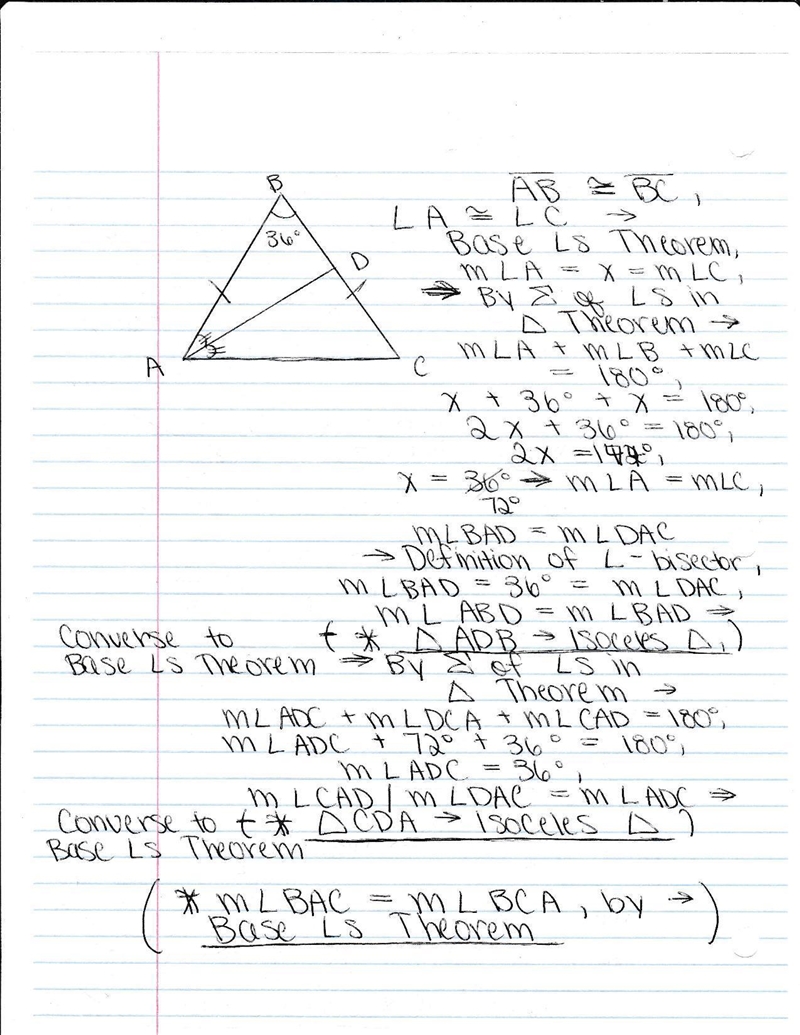 B
36°
D
A
C
AB ≅ BC,
∠A ≅ ∠C →
Base ∠s Theorem,
m∠A = x = m∠C,
⇒ By Σ of ∠s in
△ Theorem →
m∠A + m∠B + m∠C
= 180°,
x + 36° + x = 180°,
2x + 36° = 180°,
2x = 144°,
x = 36° → m∠A = m∠C,
72°
m∠BAD = m∠DAC
→ Definition of ∠-bisector,
m∠BAD = 36° = m∠DAC,
m∠ABD = m∠BAD ⇒
Converse to (* △ADB → Isoceles △,)
Base ∠s Theorem ⇒ By Σ of ∠s in
△ Theorem →
m∠ADC + m∠DCA + m∠CAD = 180°,
m∠ADC + 72° + 36° = 180°,
m∠ADC = 36°,
m∠CAD / m∠DAC = m∠ADC ⇒
Converse to (* △CDA → Isoceles △)
Base ∠s Theorem
(* m∠BAC = m∠BCA, by →
Base ∠s Theorem)